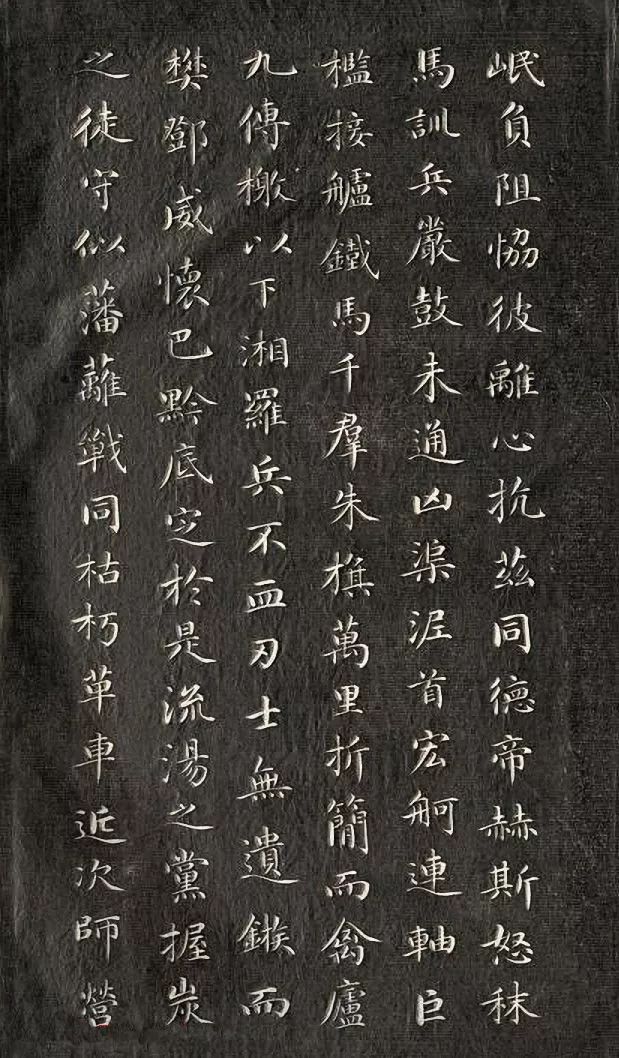 岷負阻協彼離心抗茲同德帝赫斯怒秣
馬訓兵嚴鼓未通凶渠泥首宏舸連軸巨
檻接艫鐵馬千羣朱旗萬里折簡而禽廬
九傳檄以下湘羅兵不血刃士無遺鏃而
樊鄧威懷巴黔底定於是流湯之黨握炭
之徒守似藩蘺戰同枯朽革車近次師營